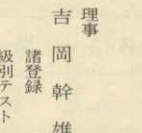 理事
吉岡幹雄
諸登録
級別テスト